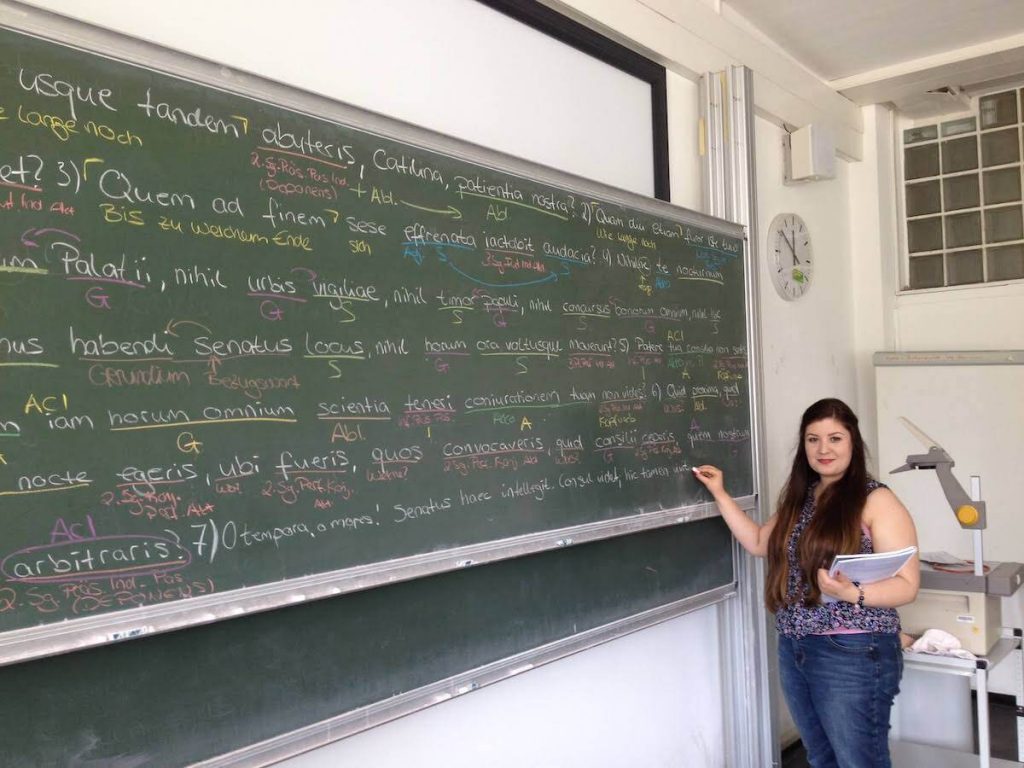 usque tandem abuteris, Catilina, patientia nostra? 2) Quam diu etiam furor iste tuus
Lange noch
2. Sg. Präs. Pas. Ind.
(Deponens)
+ Abl.
Abl
Wie lange noch
et? 3) Quem ad finem sese effrenata iactabit audacia? 4) Nihilne te nocturnum
Ind Akt
Bis zu welchem Ende
sich
A
S
3. Sg. Fut Ind Akt
S
Palatii, nihil urbis vigiliae, nihil timor populi, nihil concursus bonorum omnium, nihil hic
G
G
S
S
G
S
G
S
habendi senatus locus, nihil horum ora voltusque moverunt? 5) Patere tua consilia non sentis
Gerundium
Bezugswort
S
G
S
ACI
ACI
iam horum omnium scientia teneri coniurationem tuam non vides? 6) Quid proxima, quid
G
Abl.
A
Abl.
nocte egeris, ubi fueris, quos convocaveris, quid consilii ceperis, quem nostrum
2. Sg. Konj.
Perf. Akt
wo?
2. Sg. Perf. Konj.
Akt
wen?
2. Sg. Perf. Konj. Akt
was?
G
ACI
arbitraris? 7) O tempora, o mores! Senatus haec intellegit. Consul videt, hic tamen vivit
2. Sg. Präs. Ind. Pas.
(DEPONENS)